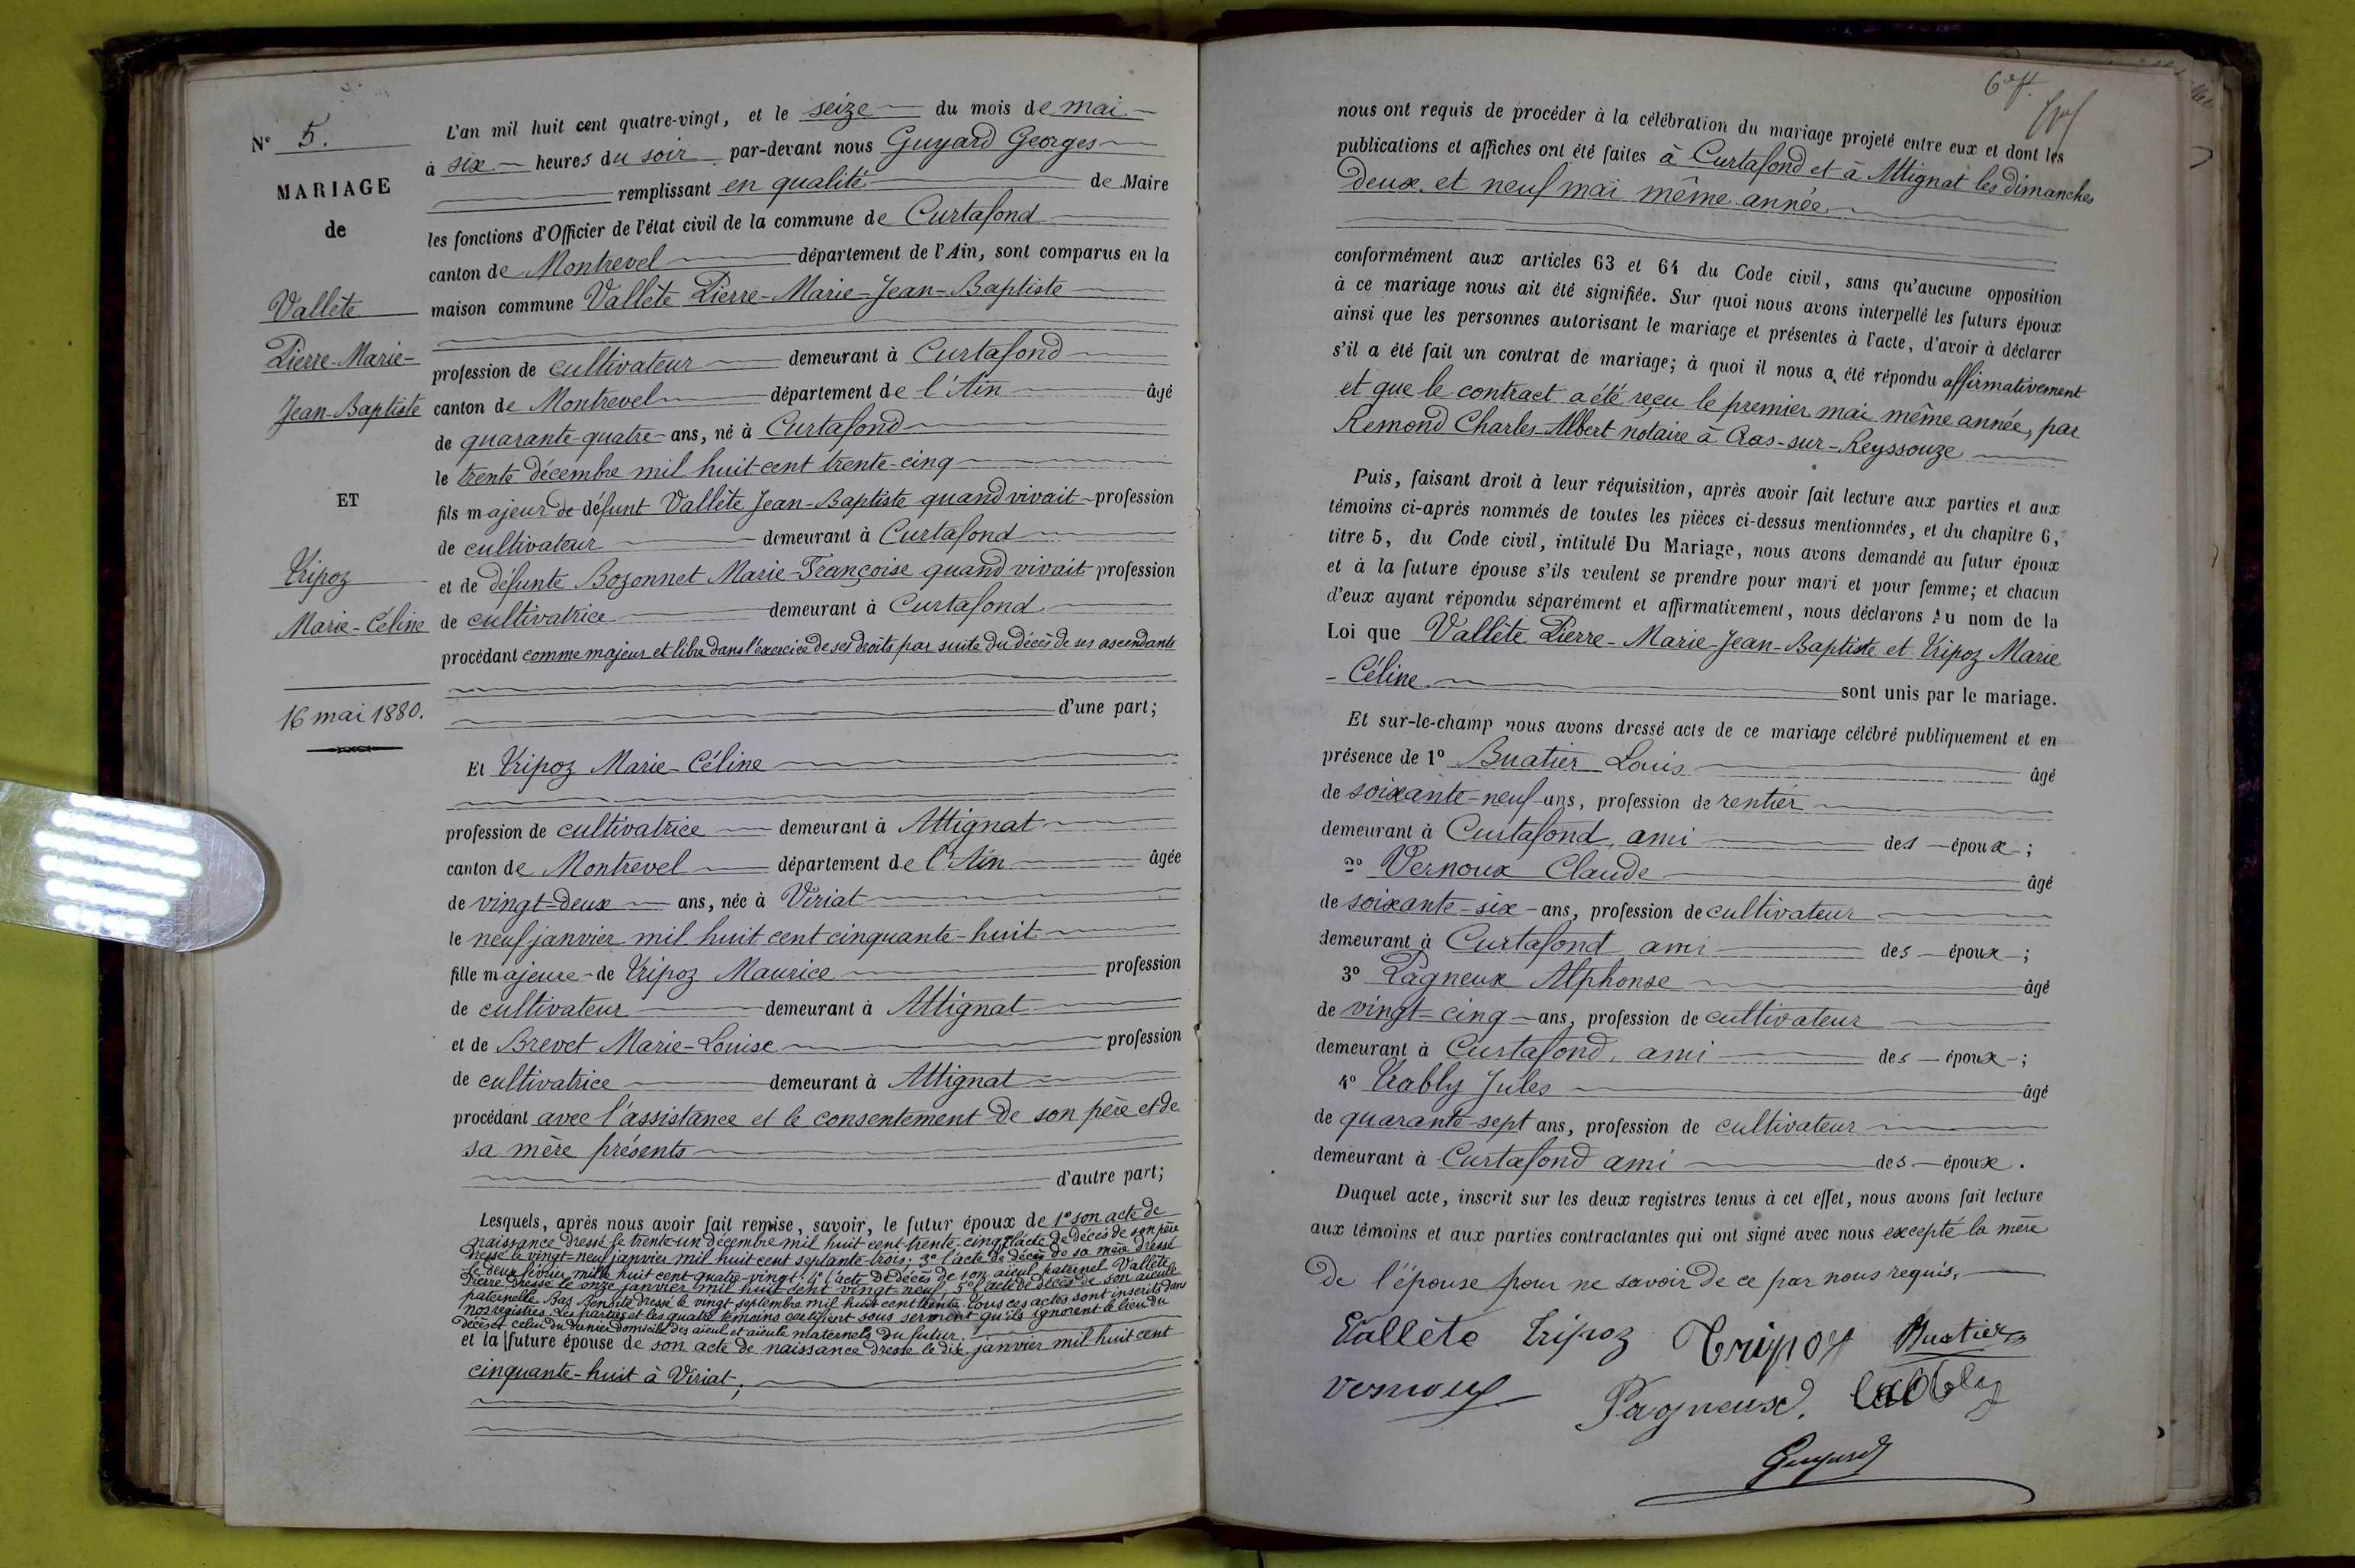 N° 5.
MARIAGE
de
Vallète
Pierre-Marie-
Jean-Baptiste
ET
Tripoz
Marie-Céline
16 mai 1880.
L'an mil huit cent quatre-vingt, et le seize du mois de mai
à six heures du soir par-devant nous Guyard Georges
remplissant en qualité de Maire
les fonctions d'Officier de l'état civil de la commune de Curtafond
canton de Montrevel département de l'Ain, sont comparus en la
maison commune Vallète Pierre-Marie-Jean-Baptiste
profession de cultivateur demeurant à Curtafond
canton de Montrevel département de l'Ain âgé
de quarante-quatre ans, né à Curtafond
le trente décembre mil huit cent trente-cinq
fils majeur de défunt Vallète Jean-Baptiste quand vivait profession
de cultivateur demeurant à Curtafond
et de défunte Bozonnet Marie-Françoise quand vivait profession
de cultivatrice demeurant à Curtafond
procédant comme majeur et libre dans l'exercice de ses droits par suite du décès de ses ascendants
d'une part;
Et Tripoz Marie-Céline
profession de cultivatrice demeurant à Attignat
canton de Montrevel département de l'Ain âgée
de vingt-deux ans, née à Viriat
le neuf janvier mil huit cent cinquante-huit
fille majeure de Tripoz Maurice profession
de cultivateur demeurant à Attignat
et de Brevet Marie-Louise profession
de cultivatrice demeurant à Attignat
procédant avec l'assistance et le consentement de son père et de
sa mère présents
d'autre part;
Lesquels, après nous avoir fait remise, savoir, le futur époux de 1° son acte de
naissance dressé le trente-un décembre mil huit cent trente-cinq; 2° l'acte de décès de son père
dressé le vingt-neuf janvier mil huit cent septante-trois; 3° l'acte de décès de sa mère dressé
le deux février mille huit cent quatre-vingt; 4° l'acte de décès de son aïeul paternel Vallète
Pierre dressé le onze janvier mil huit cent vingt-neuf; 5° l'acte de décès de son aïeule
paternelle Bas Benoite dressé le vingt septembre mil huit cent trente. Tous ces actes sont inscrits dans
nos registres. Les parties et les quatre témoins certifient sous serment qu'ils ignorent le lieu du
décès et celui du dernier domicile des aïeul et aïeule maternels du futur.
et la future épouse de son acte de naissance dressé le dix janvier mil huit cent
cinquante-huit à Viriat;
nous ont requis de procéder à la célébration du mariage projeté entre eux et dont les
publications et affiches ont été faites à Curtafond et à Attignat les dimanches
deux et neuf mai même année
conformément aux articles 63 et 64 du Code civil, sans qu'aucune opposition
à ce mariage nous ait été signifiée. Sur quoi nous avons interpellé les futurs époux
ainsi que les personnes autorisant le mariage et présentes à l'acte, d'avoir à déclarer
s'il a été fait un contrat de mariage; à quoi il nous a été répondu affirmativement
et que le contract a été reçu le premier mai même année, par
Remond Charles-Albert notaire à Cras-sur-Reyssouze
Puis, faisant droit à leur réquisition, après avoir fait lecture aux parties et aux
témoins ci-après nommés de toutes les pièces ci-dessus mentionnées, et du chapitre 6,
titre 5, du Code civil, intitulé Du Mariage, nous avons demandé au futur époux
et à la future épouse s'ils veulent se prendre pour mari et pour femme; et chacun
d'eux ayant répondu séparément et affirmativement, nous déclarons Au nom de la
Loi que Vallète Pierre-Marie-Jean-Baptiste et Tripoz Marie
-Céline sont unis par le mariage.
Et sur-le-champ nous avons dressé acte de ce mariage célébré publiquement et en
présence de 1° Buatier Louis âgé
de soixante-neuf ans, profession de rentier
demeurant à Curtafond, ami des époux;
2° Vernoux Claude âgé
de soixante-six ans, profession de cultivateur
demeurant à Curtafond ami des époux;
3° Pagneux Alphonse âgé
de vingt-cinq ans, profession de cultivateur
demeurant à Curtafond, ami des époux;
4° Trably Jules âgé
de quarante-sept ans, profession de cultivateur
demeurant à Curtafond ami des époux.
Duquel acte, inscrit sur les deux registres tenus à cet effet, nous avons fait lecture
aux témoins et aux parties contractantes qui ont signé avec nous excepté la mère
de l'épouse pour ne savoir de ce par nous requis.
Vallète Tripoz Tripoz Buatier
Vernoux Pagneux.
Guyard